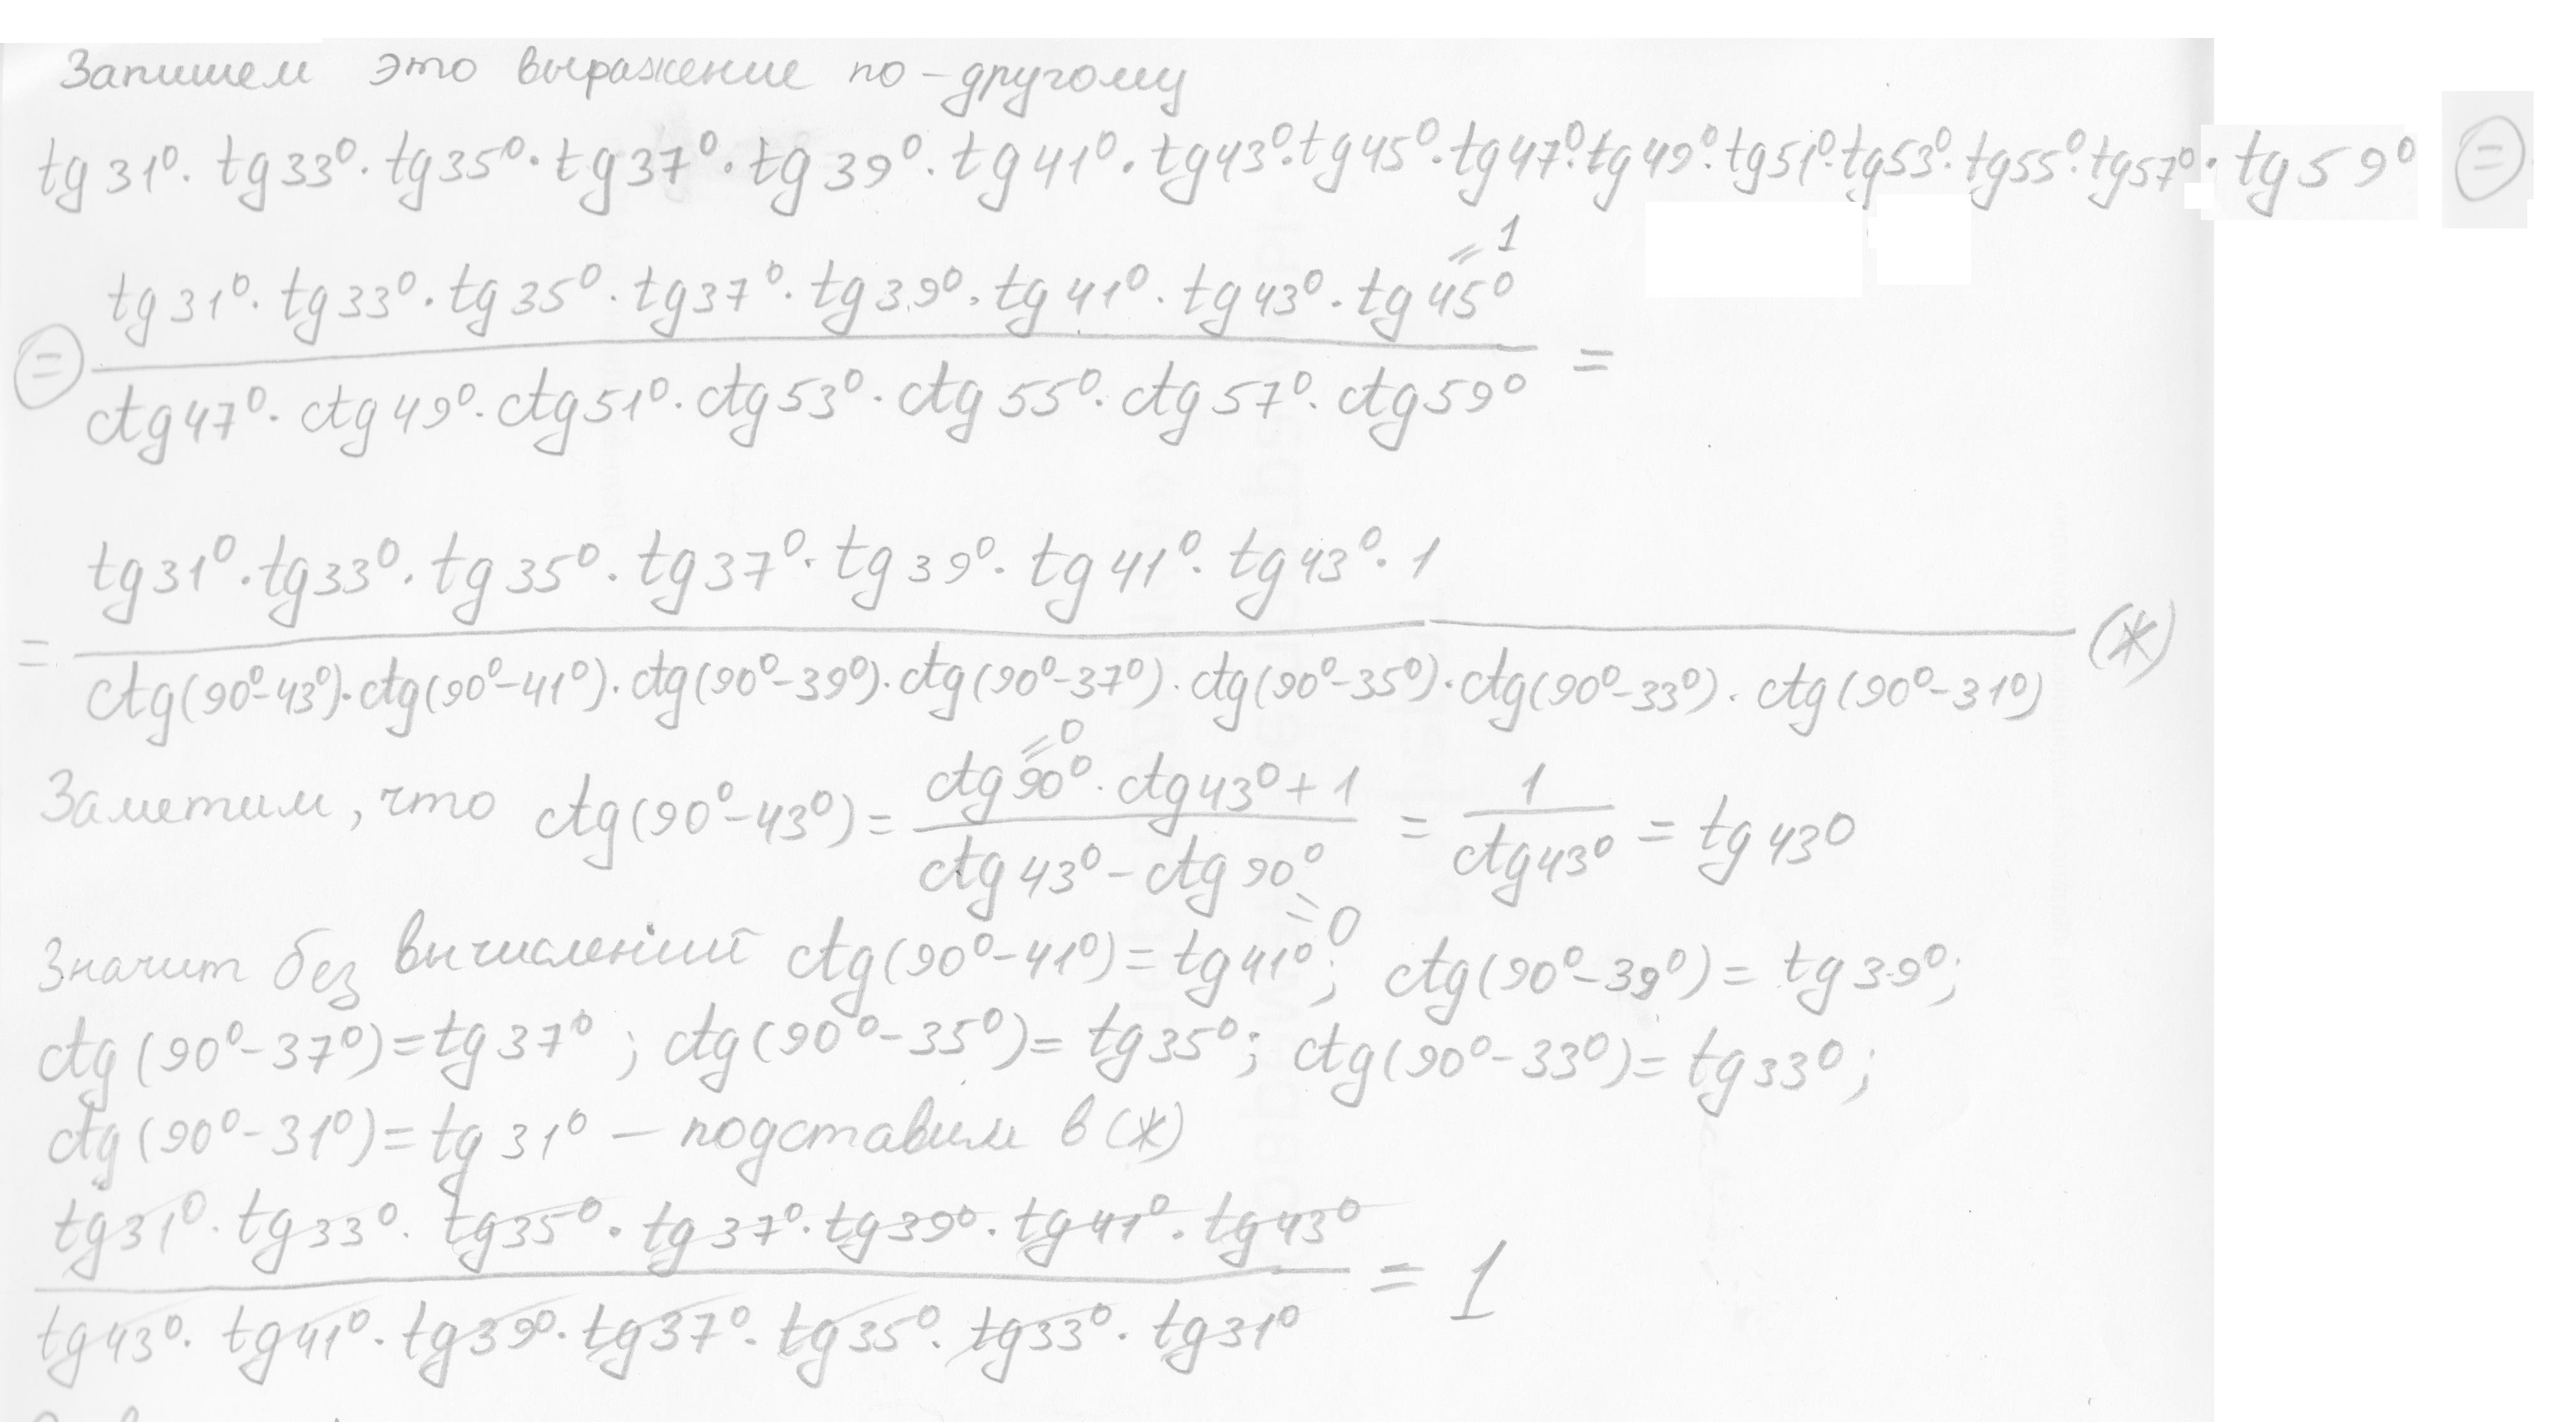 Запишем это выражение по-другому
tg31⁰·tg33⁰·tg35⁰·tg37⁰·tg39⁰·tg41⁰·tg43⁰·tg45⁰·tg47⁰·tg49⁰·tg51⁰·tg53⁰·tg55⁰·tg57⁰·tg59⁰ =
=1
tg31⁰·tg33⁰·tg35⁰·tg37⁰·tg39⁰·tg41⁰·tg43⁰·tg45⁰
= =
ctg47⁰·ctg49⁰·ctg51⁰·ctg53⁰·ctg55⁰·ctg57⁰·ctg59⁰
tg31⁰·tg33⁰·tg35⁰·tg37⁰·tg39⁰·tg41⁰·tg43⁰·1
= (*)
ctg(90⁰-43⁰)·ctg(90⁰-41⁰)·ctg(90⁰-39⁰)·ctg(90⁰-37⁰)·ctg(90⁰-35⁰)·ctg(90⁰-33⁰)·ctg(90⁰-31⁰)
=0
ctg90⁰·ctg43⁰+1 1
Заметим, что ctg(90⁰-43⁰)= = = tg43⁰
ctg43⁰-ctg90⁰ ctg43⁰
=0
Значит без вычислений ctg(90⁰-41⁰)=tg41⁰; ctg(90⁰-39⁰)=tg39⁰;
ctg(90⁰-37⁰)=tg37⁰; ctg(90⁰-35⁰)=tg35⁰; ctg(90⁰-33⁰)=tg33⁰;
ctg(90⁰-31⁰)=tg31⁰ – подставим в (*)
tg31⁰·tg33⁰·tg35⁰·tg37⁰·tg39⁰·tg41⁰·tg43⁰
= 1
tg43⁰·tg41⁰·tg39⁰·tg37⁰·tg35⁰·tg33⁰·tg31⁰